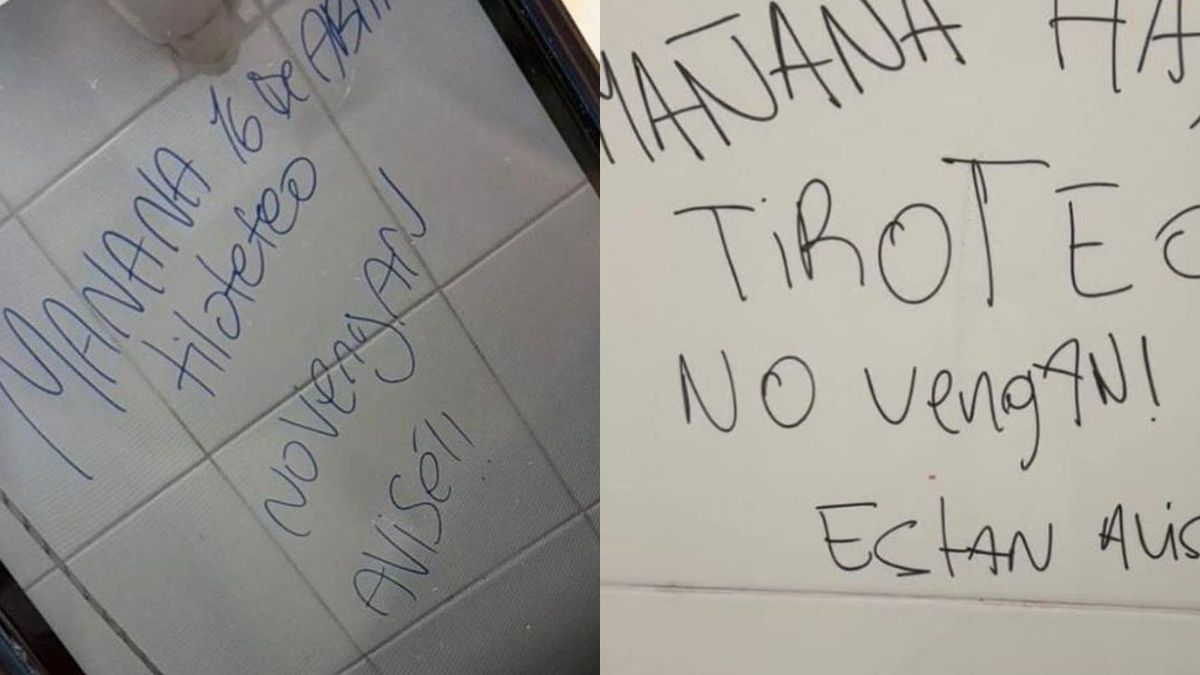 MAÑANA 16 de
tiloteo
NO VengAN
AVISé!!
MAÑANA
TiROTEO
NO VengAN!
EStAN